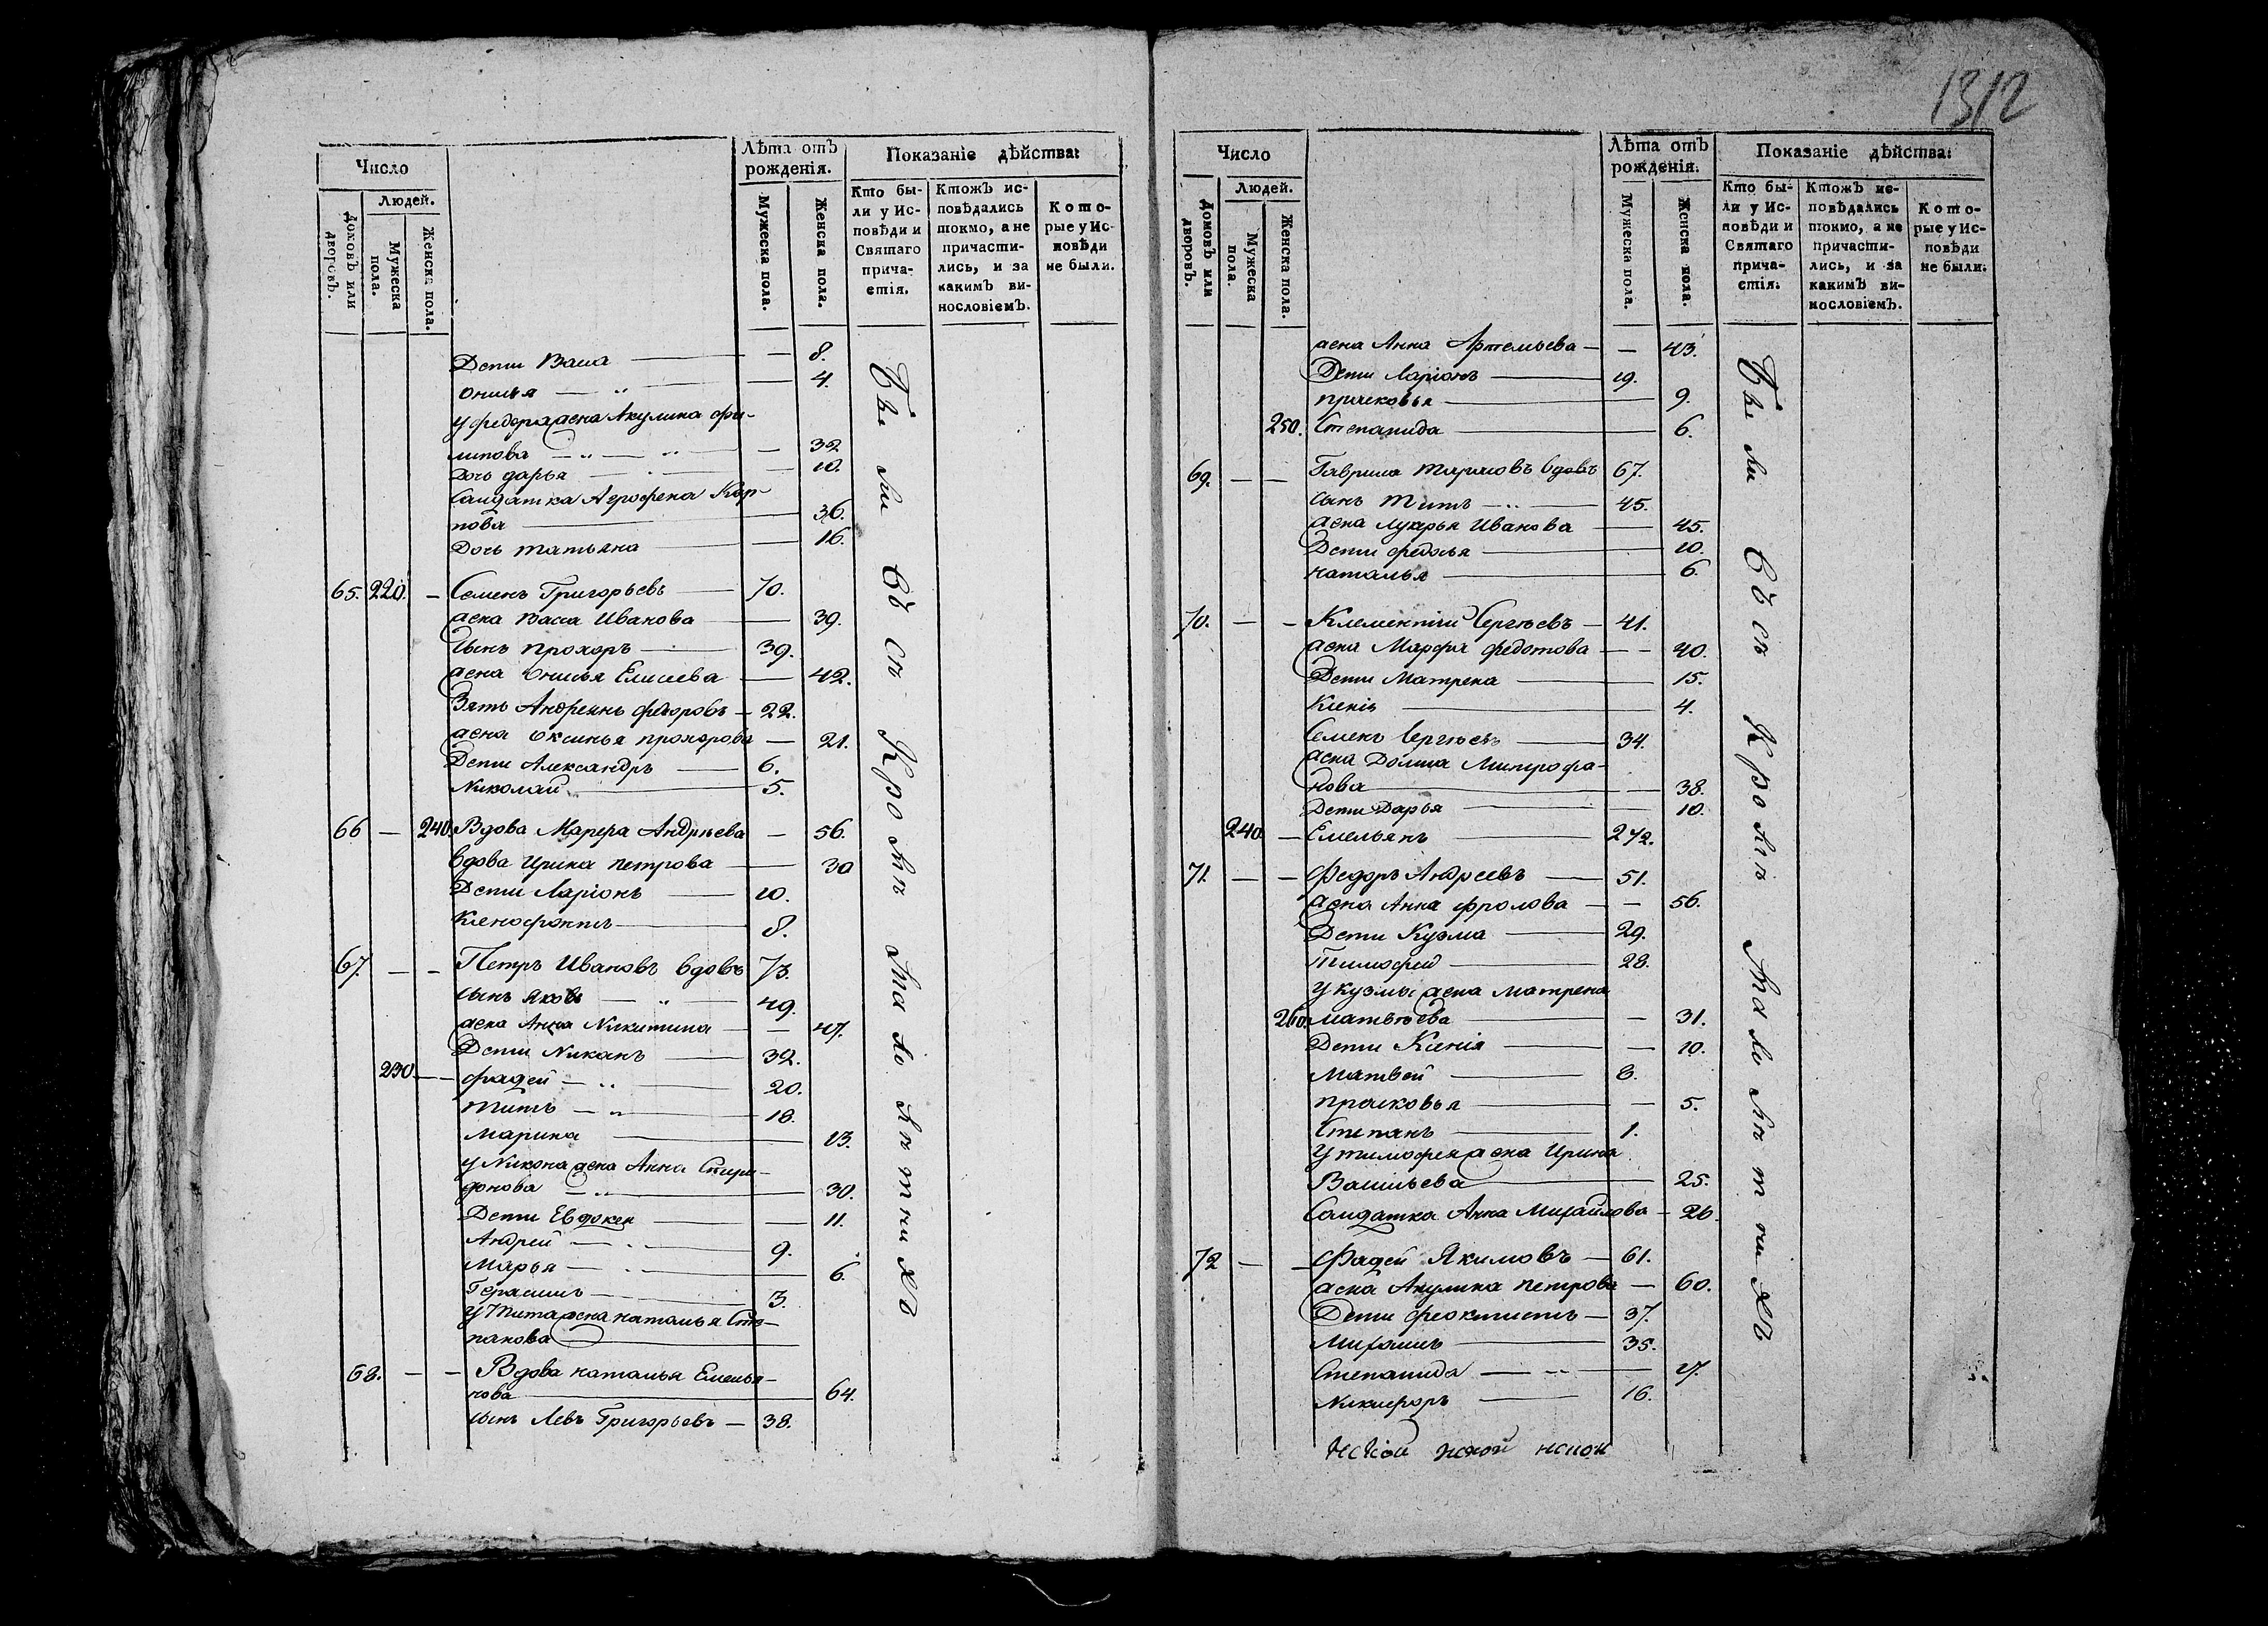 1312
Число
Лѣта отъ рожденія.
Показаніе дѣйства:
Людей.
Домовъ или дворовъ.
Мужеска пола.
Женска пола.
Мужеска пола.
Женска пола.
Кто были у Исповѣди и Святаго причастія.
Ктожъ исповѣдались токмо, а не причастились, и за какимъ винословіемъ.
Которые у Исповѣди не были.
Дети Васса — 8.
Онисья — 4.
у федора жена Акулина фи-
липова — 32
Дочь дарья — 10.
Салдатка Агрофена Кар-
пова — 36.
Дочь татьяна — 16.
65. 220. — Семенъ Григорьевъ — 70.
жена Васса Иванова — 39.
сынъ прохоръ — 39.
жена Онисья Елисеева — 42.
Зять Андреянъ федоровъ — 22.
жена Оксинья прохорова — 21.
Дети Александръ — 6.
Николай — 5.
66 — 240. Вдова Марфра Андрѣева — 56.
вдова Ирина петрова — 30
Дети Ларіонъ — 10.
Ксенофонтъ — 8.
67 — — Петръ Ивановъ вдовъ 73.
сынъ яковъ — 49.
жена Анна Никитина — 47.
Дети Никанъ — 32.
230. — — фадей — 20.
титъ — 18.
марина — 13.
у Никона жена Анна Спири-
донова — 30.
Дети Евдокея — 11.
Андрей — 9.
Марья — 6.
Герасимъ — 3.
у тита жена наталья Сте-
панова —
68. — — Вдова наталья Емелья-
нова — 64.
сынъ Левъ Григорьевъ — 38.
Были
всѣ
Число
Лѣта отъ рожденія.
Показаніе дѣйства:
Людей.
Домовъ или дворовъ.
Мужеска пола.
Женска пола.
Мужеска пола.
Женска пола.
Кто были у Исповѣди и Святаго причастія.
Ктожъ исповѣдались токмо, а не причастились, и за какимъ винословіемъ.
Которые у Исповѣди не были.
жена Анна Артемьева — 43.
Дети Ларіонъ — 19.
прасковья — 9.
250. Степанида — 6.
69. — — Гаврила тарасовъ вдовъ 67.
сынъ титъ — 45.
жена лукерья Иванова — 45.
Дети федосья — 10.
наталья — 6.
70. — — Клементій Сергѣевъ — 41.
жена Марфа федотова — 40.
Дети Матрена — 15.
Ксенія — 4.
Семенъ Сергѣевъ — 34.
жена Домна Митрофа-
нова — 38.
Дети Дарья — 10.
240. — Емельянъ —
71. — — Федоръ Андреевъ — 51.
жена Анна фролова — 56.
Дети Кузма — 29.
Тимофей — 28.
у кузмы жена матрена
260. матвѣева — 31.
Дети Ксенія — 10.
матвей — 8.
прасковья — 5.
Степанъ — 1.
у тимофея жена Ирина
Васильева — 25.
Салдатка Анна Михайлова — 26.
72 — — Фадей Якимовъ — 61.
жена Акулина петрова — 60.
Дети феоктистъ — 37.
Михаилъ — 35.
Степанида — 17.
Никифоръ — 16.
Были
всѣ